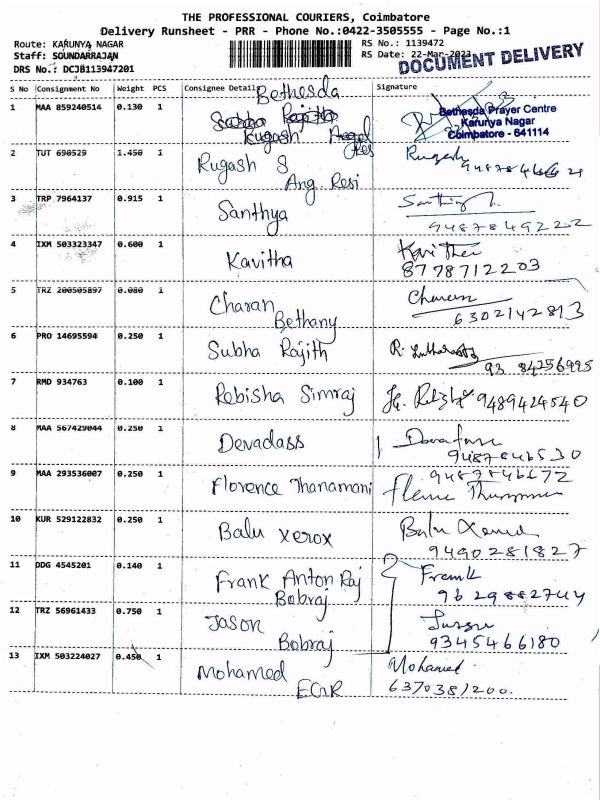 THE PROFESSIONAL COURIERS, Coimbatore
Delivery Runsheet - PRR - Phone No.:0422-3505555 - Page No.:1
Route: KARUNYA NAGAR
RS No.: 1139472
Staff: SOUNDARRAJAN
RS Date: 22-Mar-2023
DRS No.: DCJB113947201
DOCUMENT DELIVERY
S No Consignment No Weight PCS Consignee Details Signature
Bethesda
1 MAA 859240514 0.130 1 Subha Rajith
Rugash
Bethesda Prayer Centre
Karunya Nagar
Coimbatore - 641114
2 TUT 690529 1.450 1 Rugash S
Ang. Resi
3 TRP 7964137 0.915 1 Santhya
9487849222
4 IXM 503323347 0.600 1 Kavitha
8778712203
5 TRZ 200505897 0.080 1 Charan
Bethany
6302142813
6 PRO 14695594 0.250 1 Subha Rajith
7 RMD 934763 0.100 1 Rebisha Simraj 9489424540
8 MAA 567429044 0.250 1 Devadass
9487846530
9 MAA 293536007 0.250 1 Florence Thanamani
9487846672
10 KUR 529122832 0.250 1 Balu xerox
9490281827
11 DDG 4545201 0.140 1 Frank Anton Raj Frank
Bobraj 9629882744
12 TRZ 56961433 0.750 1 Jason
Bobraj 9345466180
13 IXM 503224027 0.450 1 Mohamed Mohamed
EGR 6370381200.